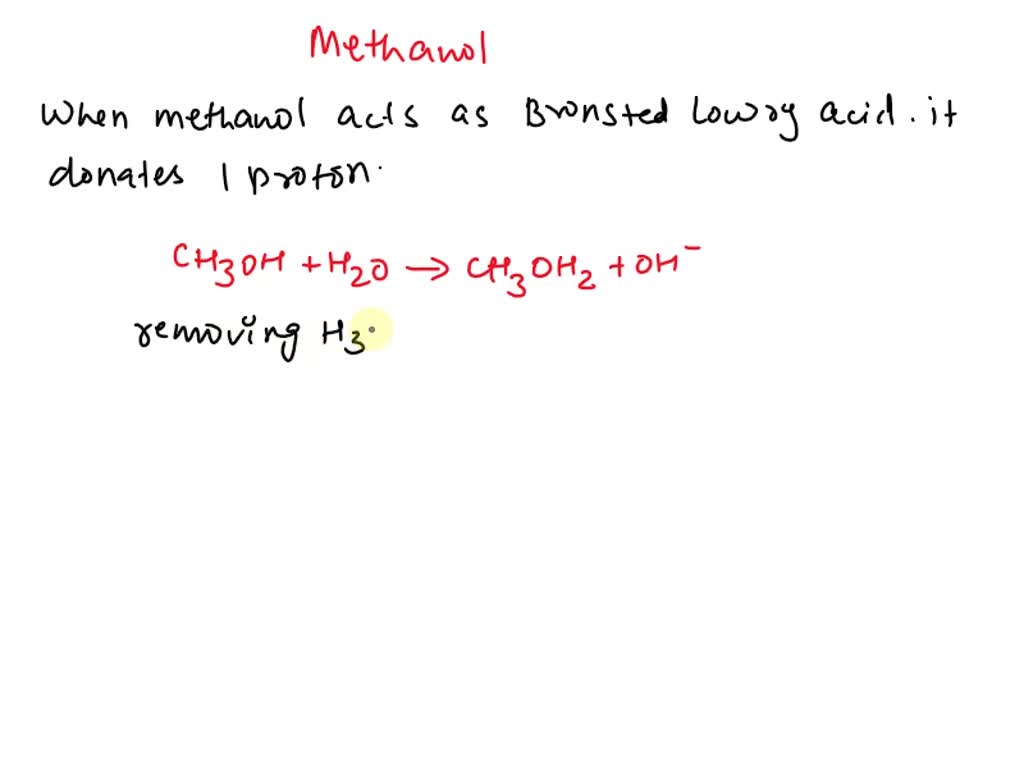 Methanol
When methanol acts as Bronsted Lowry acid. it
donates 1 proton.
CH3OH + H2O → CH3OH2 + OH⁻
removing H3